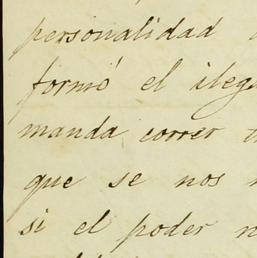 personalidad
formó el
manda correr
que se nos
si el poder